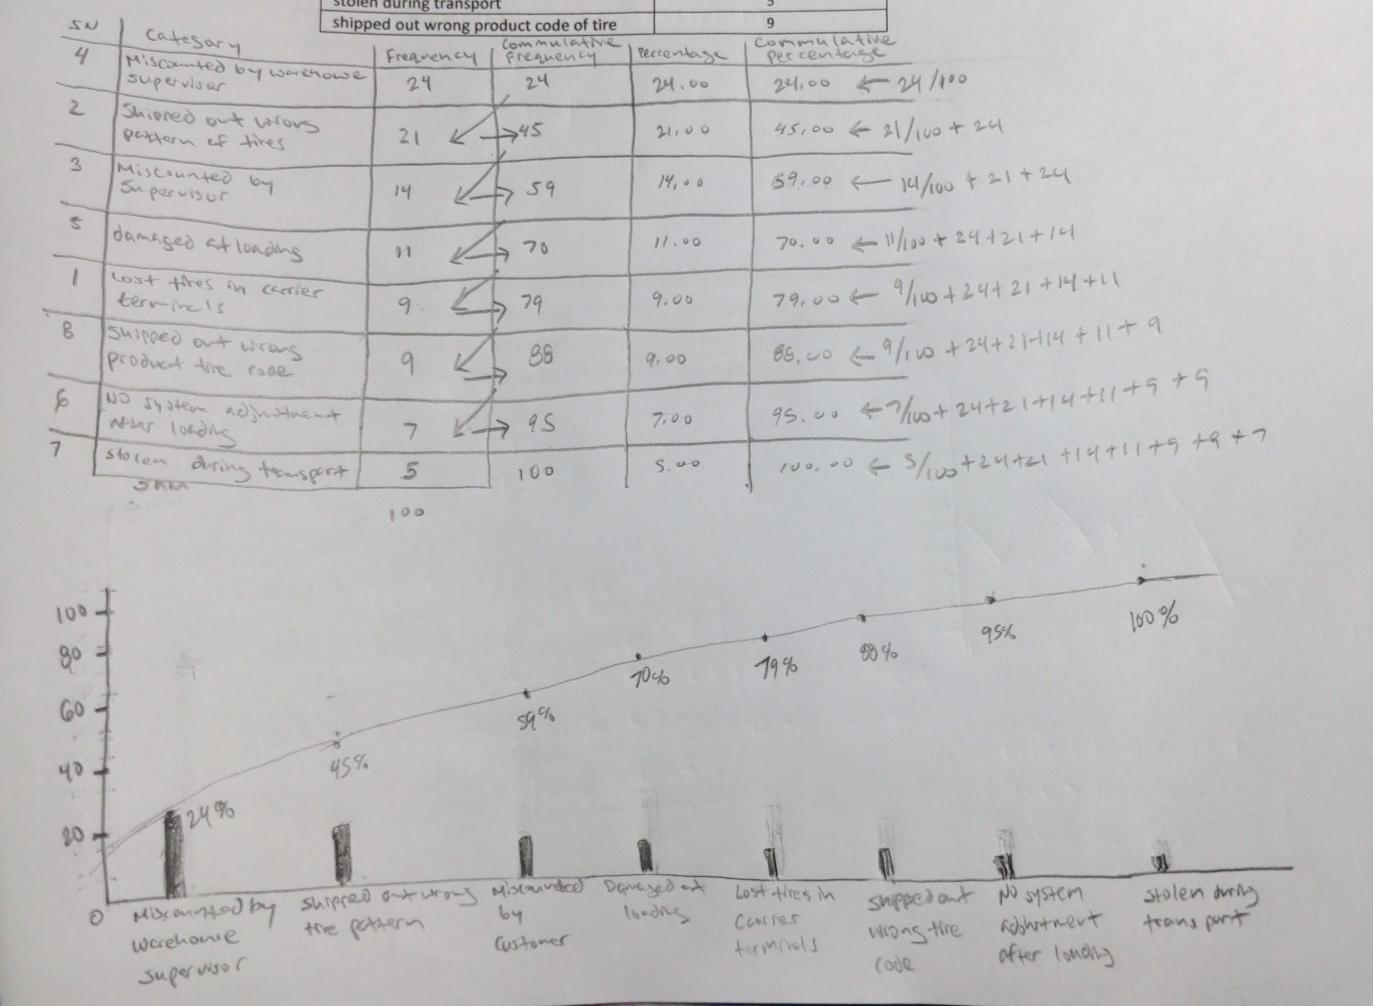 stolen during transport 5
shipped out wrong product code of tire 9
SN Category Frequency Commulative frequency Percentage Commulative percentage
4 Miscounted by warehouse supervisor 24 24 24.00 24.00 ← 24/100
2 Shipped out wrong pattern of tires 21 45 21.00 45.00 ← 21/100 + 24
3 Miscounted by Supervisor 14 59 14.00 59.00 ← 14/100 + 21 + 24
5 damaged at loading 11 70 11.00 70.00 ← 11/100 + 24 + 21 + 14
1 Lost tires in carrier terminals 9 79 9.00 79.00 ← 9/100 + 24 + 21 + 14 + 11
8 Shipped out wrong product tire code 9 88 9.00 88.00 ← 9/100 + 24 + 21 + 14 + 11 + 9
6 No system adjustment after loading 7 95 7.00 95.00 ← 7/100 + 24 + 21 + 14 + 11 + 9 + 9
7 stolen during transport 5 100 5.00 100.00 ← 5/100 + 24 + 21 + 14 + 11 + 9 + 9 + 7
SUM
100
100
80
60
40
20
0
24%
45%
59%
70%
79%
88%
95%
100%
Miscounted by
warehouse
supervisor
Shipped out wrong
tire pattern
Miscounted
by
Customer
Damaged at
loading
Lost tires in
Carrier
terminals
Shipped out
wrong tire
code
No system
adjustment
after loading
Stolen during
transport